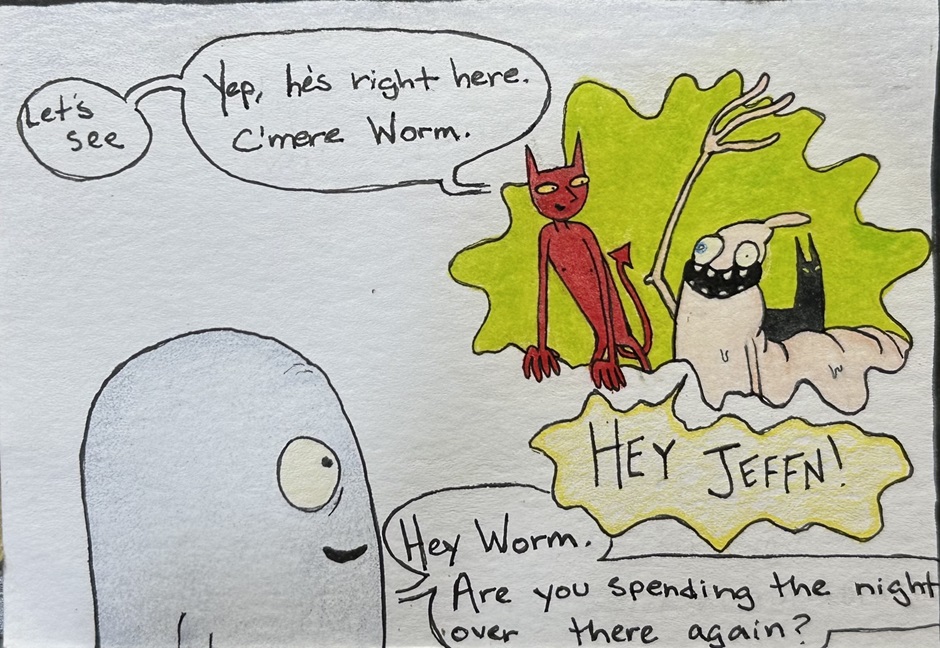 Let's
see
Yep, he's right here.
C'mere Worm.
HEY JEFFN!
Hey Worm.
Are you spending the night
over there again?